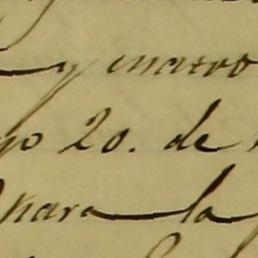 y cuatro
20. de
para la